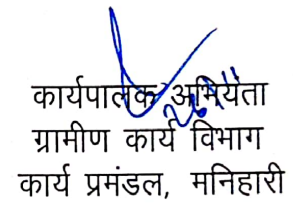 कार्यपालक अभियंता
ग्रामीण कार्य विभाग
कार्य प्रमंडल, मनिहारी